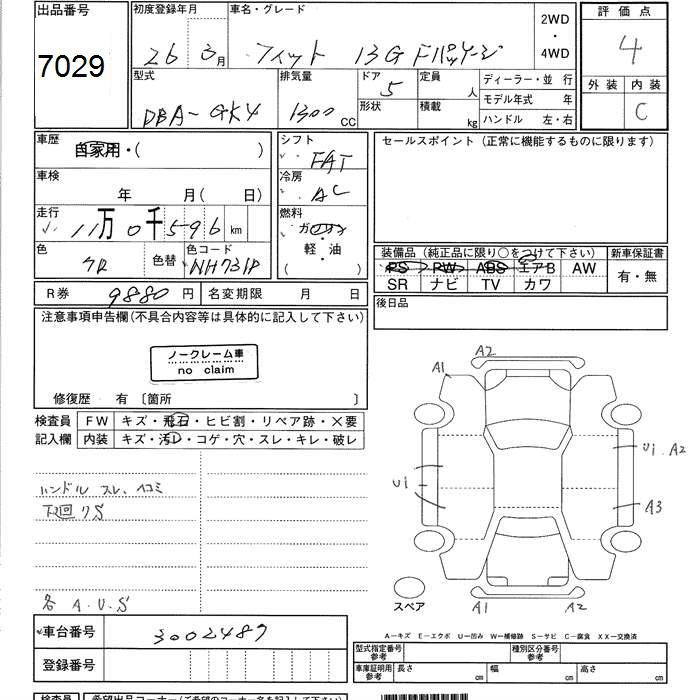 出品番号
初度登録年月
車名・グレード
2WD
・
4WD
評価点
7029
26 3月
フィット 13G Fパッケージ
4
型式
排気量
ドア
定員
人
ディーラー・並 行
外装 内装
DBA-GK4
1300 CC
5
形状
積載
kg
モデル年式 年
ハンドル 左・右
C
車歴
自家用・( )
シフト
FAT
セールスポイント (正常に機能するものに限ります)
車検
年 月( 日)
冷房
AC
走行
11万 0千 596 km
燃料
ガソリン
・
軽・油
( )
色
クロ
色替
色コード
NH731P
装備品 (純正品に限り○をつけて下さい)
新車保証書
PS PW ABS エアB AW
有・無
SR ナビ TV カワ
R券 9880 円
名変期限 月 日
後日品
注意事項申告欄(不具合内容等は具体的に記入して下さい)
ノークレーム車
no claim
修復歴 有 〔箇所 〕
検査員
記入欄
FW キズ・飛石・ヒビ割・リペア跡・×要
内装 キズ・汚レ・コゲ・穴・スレ・キレ・破レ
ハンドル スレ、ヘコミ
下廻クS
各 A.U.S
A2
A1
U1. A2
U1
A3
A1
A2
スペア
車台番号 3002487
登録番号
A－キズ E－エクボ U－凹み W－補修跡 S－サビ C－腐食 XX－交換済
型式指定番号
参考
種別区分番号
参考
車庫証明用
参考
長さ cm
幅 cm
高さ cm
検査員
希望出品コーナー(ご希望のコーナー名を記入して下さい)